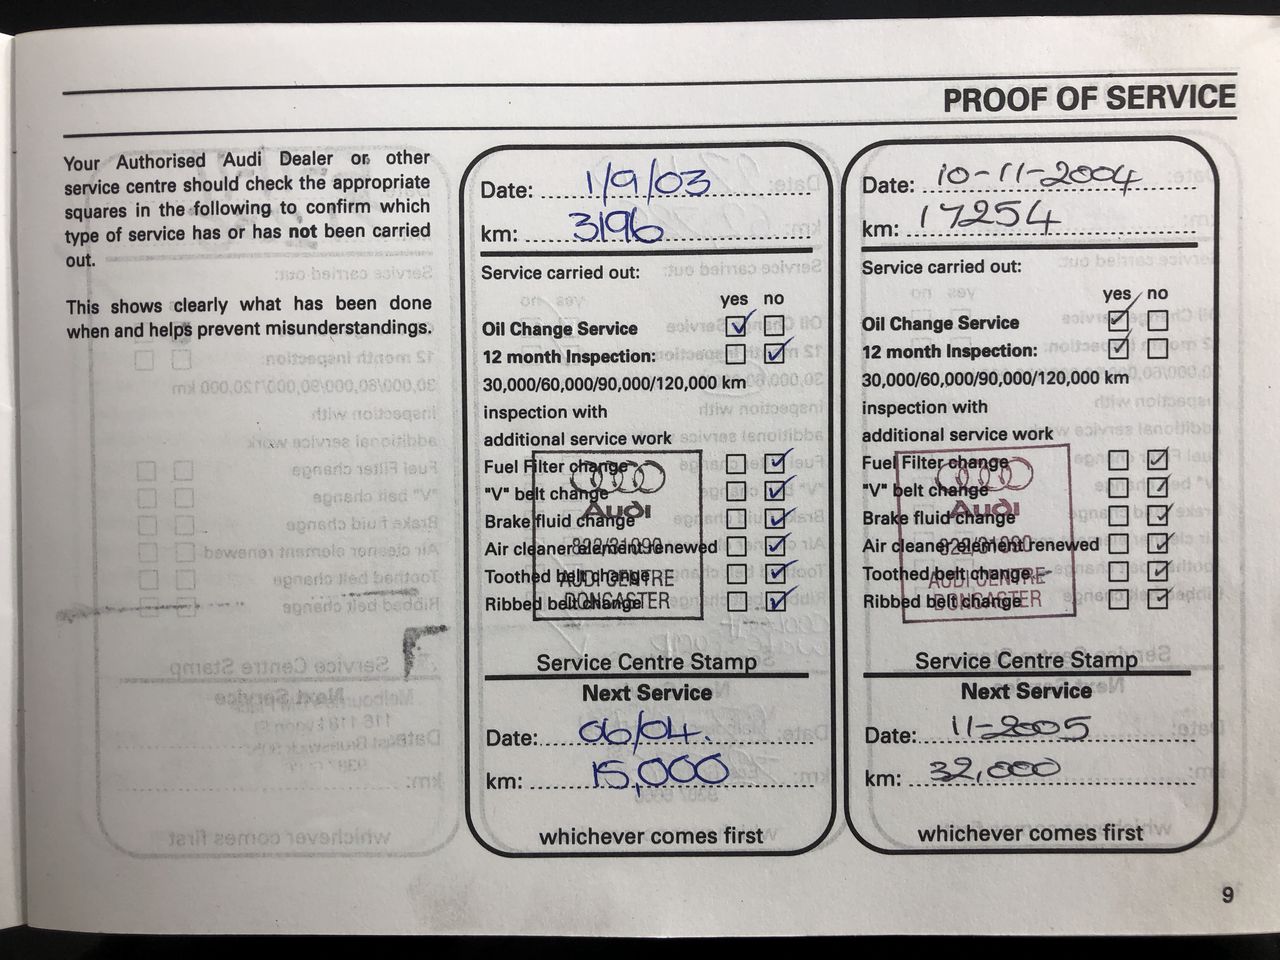 PROOF OF SERVICE
Your Authorised Audi Dealer or other
service centre should check the appropriate
squares in the following to confirm which
type of service has or has not been carried
out.
This shows clearly what has been done
when and helps prevent misunderstandings.
Date: 1/9/03
km: 3196
Service carried out:
yes no
Oil Change Service
12 month Inspection:
30,000/60,000/90,000/120,000 km
inspection with
additional service work
Fuel Filter change
"V" belt change
Audi
Brake fluid change
Air cleaner element renewed
Toothed belt change
AUDI CENTRE
Ribbed belt change
DONCASTER
Service Centre Stamp
Next Service
Date: 06/04.
km: 15,000
whichever comes first
Date: 10-11-2004
km: 17254
Service carried out:
yes no
Oil Change Service
12 month Inspection:
30,000/60,000/90,000/120,000 km
inspection with
additional service work
Fuel Filter change
"V" belt change
Audi
Brake fluid change
Air cleaner element renewed
Toothed belt change
AUDI CENTRE
Ribbed belt change
DONCASTER
Service Centre Stamp
Next Service
Date: 11-2005
km: 32,000
whichever comes first
9